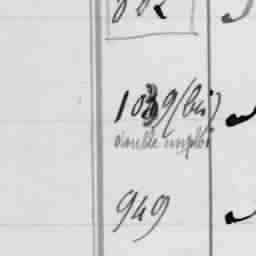 1039 (bis)
double emploi
949